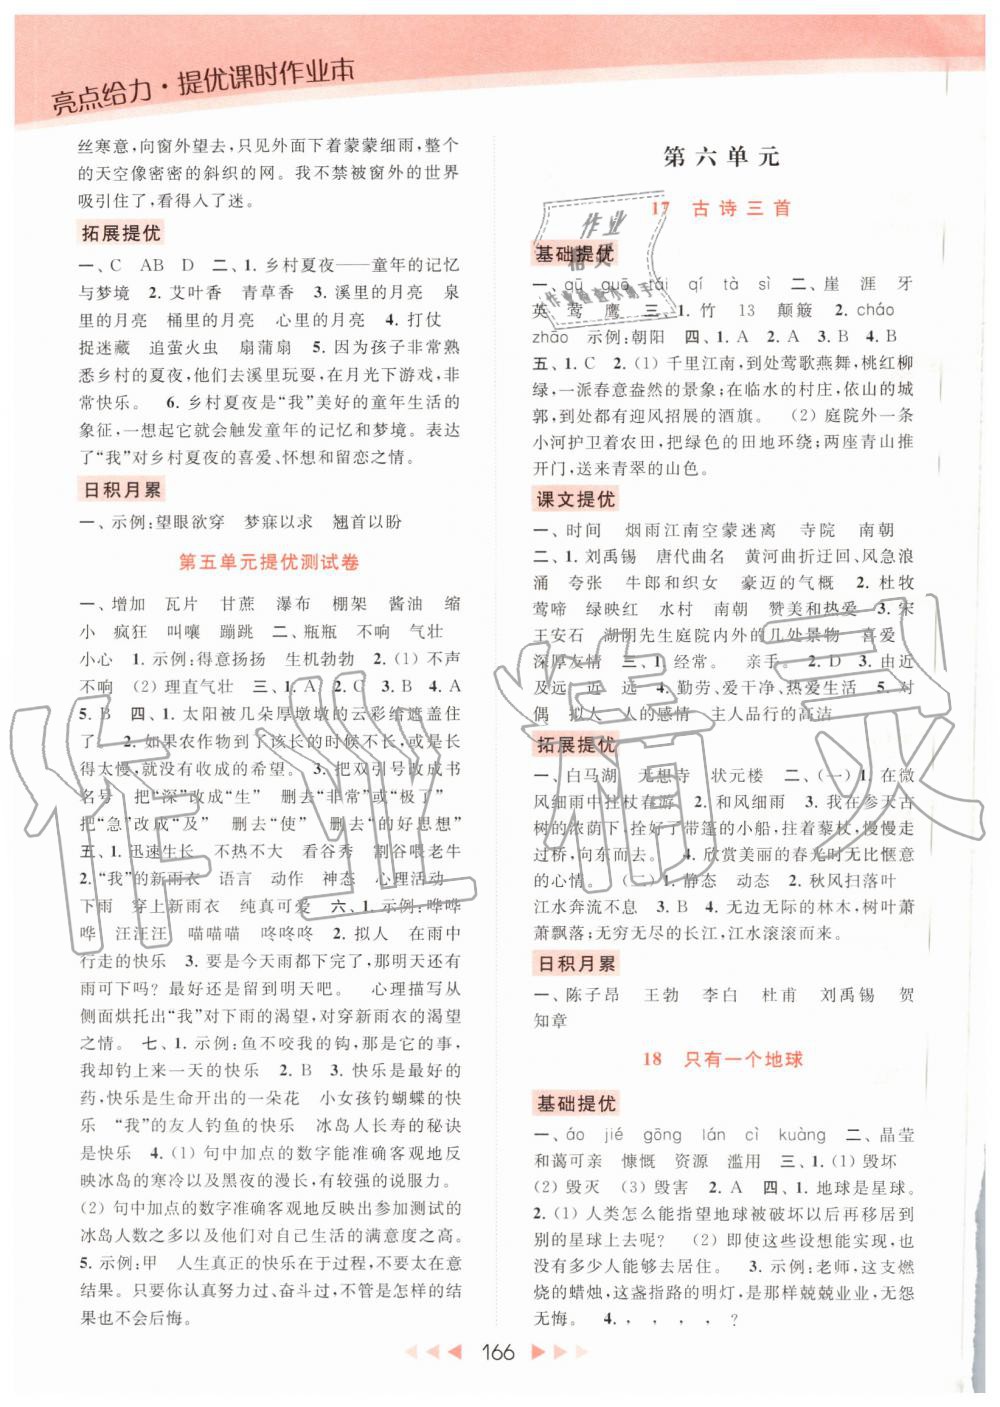 亮点给力·提优课时作业本
丝寒意,向窗外望去,只见外面下着蒙蒙细雨,密密
的天空像密密的斜织的网。我不禁被窗外的世界
吸引住了,看得入了迷。
拓展提优
一、C AB D 二、1. 乡村夏夜——童年的记忆
与梦境 2. 艾叶香 青草香 3. 溪里的月亮 泉
里的月亮 桶里的月亮 心里的月亮 4. 打仗
捉迷藏 追萤火虫 扇蒲扇 5. 因为孩子非常熟
悉乡村的夏夜,他们去溪里玩耍,在月光下游戏,非
常快乐。 6. 乡村夏夜是“我”美好的童年生活的
象征,一想起它就会触发童年的记忆和梦境。表达
了“我”对乡村夏夜的喜爱、怀想和留恋之情。
日积月累
一、示例:望眼欲穿 梦寐以求 翘首以盼
第五单元提优测试卷
一、增加 瓦片 甘蔗 瀑布 棚架 酱油 缩
小 疯狂 叫嚷 蹦跳 二、瓶瓶 不响 气壮
小心 1. 示例:得意扬扬 生机勃勃 2.(1) 不声
不响 (2) 理直气壮 三、1. A 2. C 3. B 4. A
5. B 四、1. 太阳被几朵厚墩墩的云彩给遮盖住
了。 2. 如果农作物到了该长的时候不长,或是长
得太慢,就没有收成的希望。 3. 把双引号改成书
名号 把“深”改成“生” 删去“非常”或“极了”
把“急”改成“及” 删去“使” 删去“的好思想”
五、1. 迅速生长 不热不大 看谷秀 割谷喂老牛
2.“我”的新雨衣 语言 动作 神态 心理活动
下雨 穿上新雨衣 纯真可爱 六、1. 示例:哗哗
哗 汪汪汪 喵喵喵 咚咚咚 2. 拟人 在雨中
行走的快乐 3. 要是今天雨都下完了,那明天还有
雨可下吗? 最好还是留到明天吧。 心理描写从
侧面烘托出“我”对下雨的渴望,对穿新雨衣的渴望
之情。 七、1. 示例:鱼不咬我的钩,那是它的事,
我却钓上来一天的快乐 2. B 3. 快乐是最好的
药,快乐是生命开出的一朵花 小女孩钓蝴蝶的快
乐 “我”的友人钓鱼的快乐 冰岛人长寿的秘诀
是快乐 4.(1) 句中加点的数字能准确客观地反
映冰岛的寒冷以及黑夜的漫长,有较强的说服力。
(2) 句中加点的数字准确客观地反映出参加测试的
冰岛人数之多以及他们对自己生活的满意度之高。
5. 示例:甲 人生真正的快乐在于过程,不要太在意
结果。只要你认真努力过、奋斗过,不管是怎样的结
果也不会后悔。
第六单元
17 古诗三首
基础提优
一、 qū guō tái qí tà sì 二、崖 涯 牙
英 莺 鹰 三、1. 竹 13 颠簸 2. cháo
zhāo 示例:朝阳 四、1. A 2. A 3. B 4. B
五、1. C 2.(1) 千里江南,到处莺歌燕舞,桃红柳
绿,一派春意盎然的景象;在临水的村庄,依山的城
郭,到处都有迎风招展的酒旗。 (2) 庭院外一条
小河护卫着农田,把绿色的田地环绕;两座青山推
开门,送来青翠的山色。
课文提优
一、时间 烟雨江南空蒙迷离 寺院 南朝
二、1. 刘禹锡 唐代曲名 黄河曲折迂回,风急浪
涌 夸张 牛郎和织女 豪迈的气概 2. 杜牧
莺啼 绿映红 水村 南朝 赞美和热爱 3. 宋
王安石 湖阴先生庭院内外的几处景物 喜爱
深厚友情 三、1. 经常。 亲手。 2. D 3. 由近
及远 近 远 4. 勤劳、爱干净、热爱生活 5. 对
偶 拟人 人的感情 主人品行的高洁
拓展提优
一、白马湖 无想寺 状元楼 二、(一) 1. 在微
风细雨中拄杖春游 2. 和风细雨 3. 我在参天古
树的浓荫下,拴好了带篷的小船,拄着藜杖,慢慢走
过桥,向东而去。 4. 欣赏美丽的春光时无比惬意
的心情。 (二) 1. 静态 动态 2. 秋风扫落叶
江水奔流不息 3. B 4. 无边无际的林木,树叶萧
萧飘落;无穷无尽的长江,江水滚滚而来。
日积月累
一、陈子昂 王勃 李白 杜甫 刘禹锡 贺
知章
18 只有一个地球
基础提优
一、áo jié gōng lán cì kuàng 二、晶莹
和蔼可亲 慷慨 资源 滥用 三、1.(1) 毁坏
(2) 毁灭 (3) 毁害 2. A 四、1. 地球是星球。
2.(1) 人类怎么能指望地球被破坏以后再移居到
别的星球上去呢? (2) 即使这些设想能实现,也
没有多少人能够去居住。 3. 示例:老师,这支燃
烧的蜡烛,这盏指路的明灯,是那样兢兢业业,无怨
无悔。 4. , , , , ?
166
作业精灵